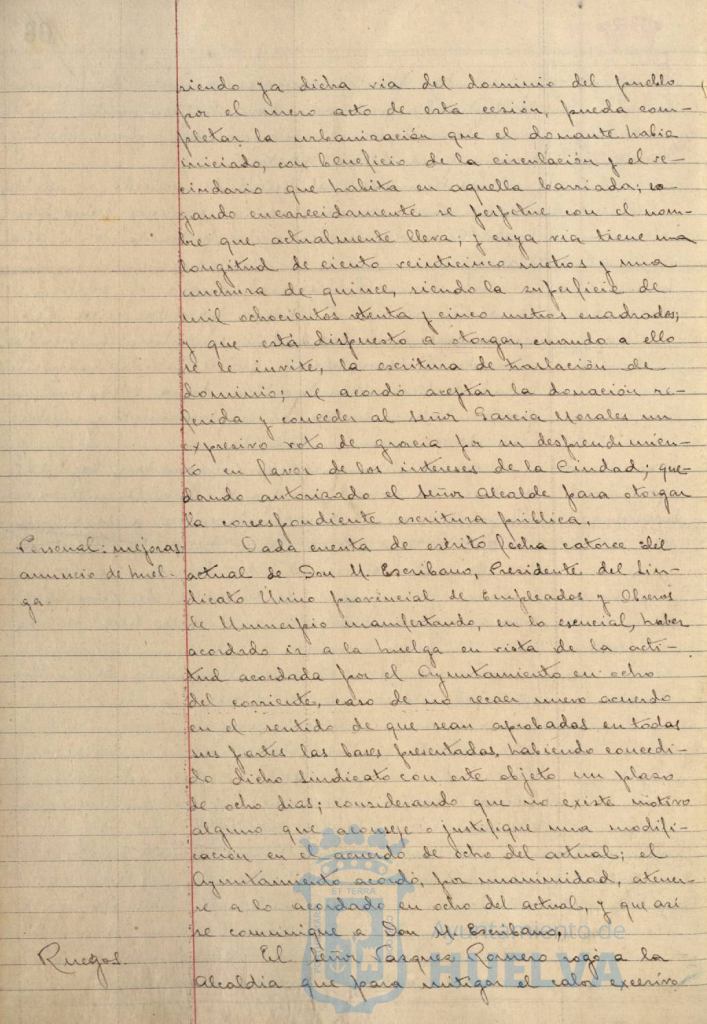 siendo ya dicha via del dominio del pueblo
por el mero acto de esta cesión, pueda com-
pletar la urbanización que el donante habia
iniciado, con beneficio de la circulación y el ve-
cindario que habita en aquella barriada; ro
gando encarecidamente se perpetue con el nom-
bre que actualmente lleva; y cuya via tiene una
longitud de ciento veinticinco metros y una
anchura de quince, siendo la superficie de
mil ochocientos setenta y cinco metros cuadrados;
y que está dispuesto a otorgar, cuando a ello
se le invite, la escritura de traslación de
dominio; se acordó aceptar la donación re-
ferida y conceder al Señor Garcia Morales un
expresivo voto de gracia por su desprendimien-
to en favor de los intereses de la Ciudad; que-
dando autorizado el Señor Alcalde para otorgar
la correspondiente escritura pública.
Personal: mejoras:
anuncio de huel-
ga.
Dada cuenta de escrito fecha catorce del
actual de Don M. Escribano, Presidente del Sin-
dicato Único provincial de Empleados y Obreros
de Municipio manifestando, en lo esencial, haber
acordado ir a la huelga en vista de la acti-
tud acordada por el Ayuntamiento en ocho
del corriente, caso de no recaer nuevo acuerdo
en el sentido de que sean aprobadas en todas
sus partes las bases presentadas, habiendo concedi-
do dicho Sindicato con este objeto un plazo
de ocho dias; considerando que no existe motivo
alguno que aconseje o justifique una modifi-
cación en el acuerdo de ocho del actual; el
Ayuntamiento acordó, por unanimidad, atener-
se a lo acordado en ocho del actual, y que asi
se comunique a Don M. Escribano.
Ruegos.
El Señor Vazquez Romero rogó a la
Alcaldia que para mitigar el calor excesivo
ET TERRA
Ayuntamiento de
HUELVA